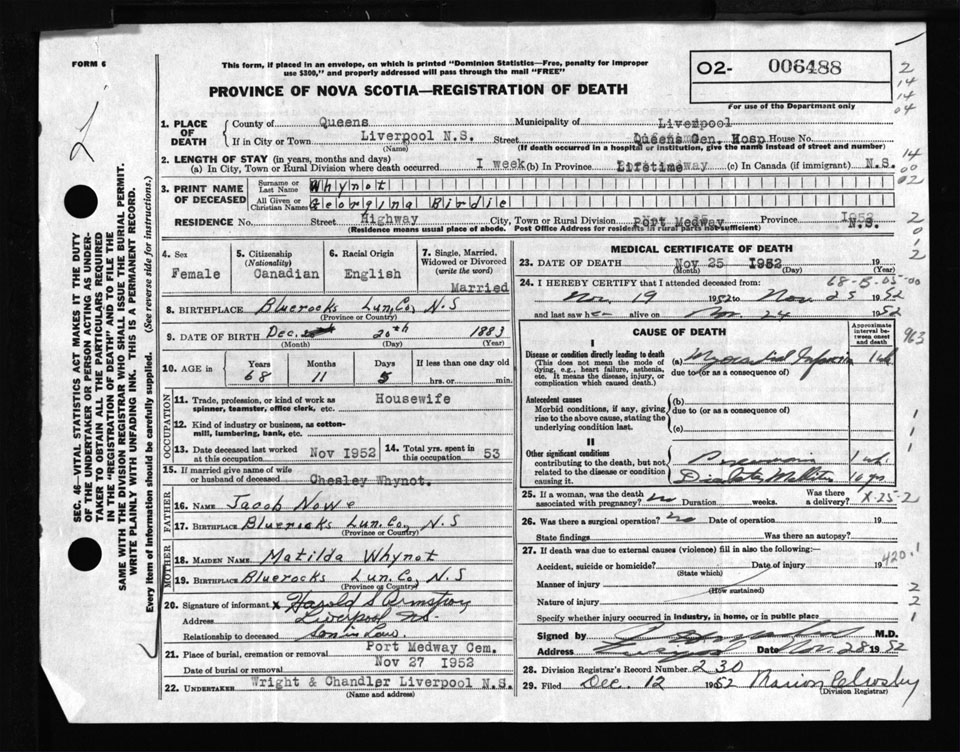 FORM 6
This form, if placed in an envelope, on which is printed "Dominion Statistics—Free, penalty for improper
use $300," and properly addressed will pass through the mail "FREE"
PROVINCE OF NOVA SCOTIA—REGISTRATION OF DEATH
O2- 006488
For use of the Department only
2
14
14
04
14
00
02
2
0
12
1. PLACE OF DEATH
County of Queens Municipality of Liverpool
If in City or Town Liverpool N.S. Street Queens Gen. Hosp House No.
(Name) (If death occurred in a hospital or institution, give the name instead of street and number)
2. LENGTH OF STAY (in years, months and days)
(a) In City, Town or Rural Division where death occurred I week (b) In Province Lifetime (c) In Canada (if immigrant) N.S.
3. PRINT NAME OF DECEASED
Surname or Last Name Whynot
All Given or Christian Names Georgina Birdie
RESIDENCE No. Street Highway City, Town or Rural Division Port Medway Province N.S.
(Residence means usual place of abode. Post Office Address for residents in rural parts not sufficient)
4. Sex Female
5. Citizenship (Nationality) Canadian
6. Racial Origin English
7. Single, Married, Widowed or Divorced (write the word) Married
8. BIRTHPLACE Bluerocks Lun. Co, N.S
(Province or Country)
9. DATE OF BIRTH Dec. 20th 1883
(Month) (Day) (Year)
10. AGE in Years 68 Months 11 Days 5 If less than one day old hrs. or min.
OCCUPATION
11. Trade, profession, or kind of work as spinner, teamster, office clerk, etc. Housewife
12. Kind of industry or business, as cotton-mill, lumbering, bank, etc.
13. Date deceased last worked at this occupation Nov 1952 14. Total yrs. spent in this occupation 53
15. If married give name of wife or husband of deceased Chesley Whynot.
FATHER
16. NAME Jacob Nowe
17. BIRTHPLACE Bluerocks Lun. Co, N.S
(Province or Country)
MOTHER
18. MAIDEN NAME Matilda Whynot
19. BIRTHPLACE Bluerocks Lun. Co, N.S
(Province or Country)
20. Signature of informant x Harold S Armstrong
Address Liverpool NS.
Relationship to deceased Son in law.
21. Place of burial, cremation or removal Port Medway Cem.
Date of burial or removal Nov 27 1952
22. UNDERTAKER Wright & Chandler Liverpool N.S.
(Name and address)
MEDICAL CERTIFICATE OF DEATH
23. DATE OF DEATH Nov 25 1952
(Month) (Day) (Year)
68-B-05-00
24. I HEREBY CERTIFY that I attended deceased from
Nov. 19 1952 to Nov. 25 1952
and last saw h alive on Nov. 24 1952
963
CAUSE OF DEATH
Approximate interval between onset and death
I
Disease or condition directly leading to death
(This does not mean the mode of dying, e.g., heart failure, asthenia, etc. It means the disease, injury, or complication which caused death.)
(a) Myocardial Infarction 1 wk
due to (or as a consequence of)
Antecedent causes
Morbid conditions, if any, giving rise to the above cause, stating the underlying condition last.
(b)
due to (or as a consequence of)
(c)
II
Other significant conditions
contributing to the death, but not related to the disease or condition causing it.
Pneumonia 1 wk.
Diabetes Mellitus 10 yrs
1
1
1
25. If a woman, was the death associated with pregnancy? no Duration weeks. Was there a delivery?
X-25-2
26. Was there a surgical operation? no Date of operation 19
State findings Was there an autopsy?
27. If death was due to external causes (violence) fill in also the following:—
420.1
Accident, suicide or homicide? Date of injury 19
(State which)
Manner of injury
(How sustained)
Nature of injury
Specify whether injury occurred in industry, in home, or in public place
2
2
1
Signed by M.D.
Address Liverpool Date Nov. 28 1952
28. Division Registrar's Record Number 230
29. Filed Dec. 12 1952 Marion
(Division Registrar)
SEC. 46—VITAL STATISTICS ACT MAKES IT THE DUTY
OF THE UNDERTAKER OR PERSON ACTING AS UNDER-
TAKER TO OBTAIN ALL THE PARTICULARS REQUIRED
IN THE "REGISTRATION OF DEATH" AND TO FILE THE
SAME WITH THE DIVISION REGISTRAR WHO SHALL ISSUE THE BURIAL PERMIT.
WRITE PLAINLY WITH UNFADING INK. THIS IS A PERMANENT RECORD.
Every item of information should be carefully supplied. (See reverse side for instructions.)